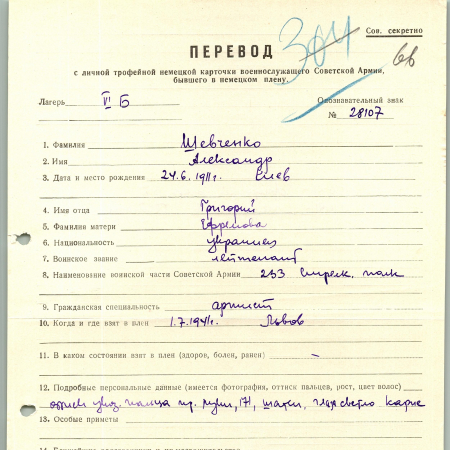 Сов. секретно
304
66
ПЕРЕВОД
с личной трофейной немецкой карточки военнослужащего Советской Армии,
бывшего в немецком плену.
Лагерь VI Б Опознавательный знак
№ 28107
1. Фамилия Шевченко
2. Имя Александр
3. Дата и место рождения 24.6.1911г. Киев
4. Имя отца Григорий
5. Фамилия матери Ефремова
6. Национальность украинец
7. Воинское звание лейтенант
8. Наименование воинской части Советской Армии 233 стрелк. полк
9. Гражданская специальность артист
10. Когда и где взят в плен 1.7.1941г. Львов
11. В каком состоянии взят в плен (здоров, болен, ранен) –
12. Подробные персональные данные (имеется фотография, оттиск пальцев, рост, цвет волос)
оттиск указ. пальца пр. руки, 171, шатен, глаза светло карие
13. Особые приметы